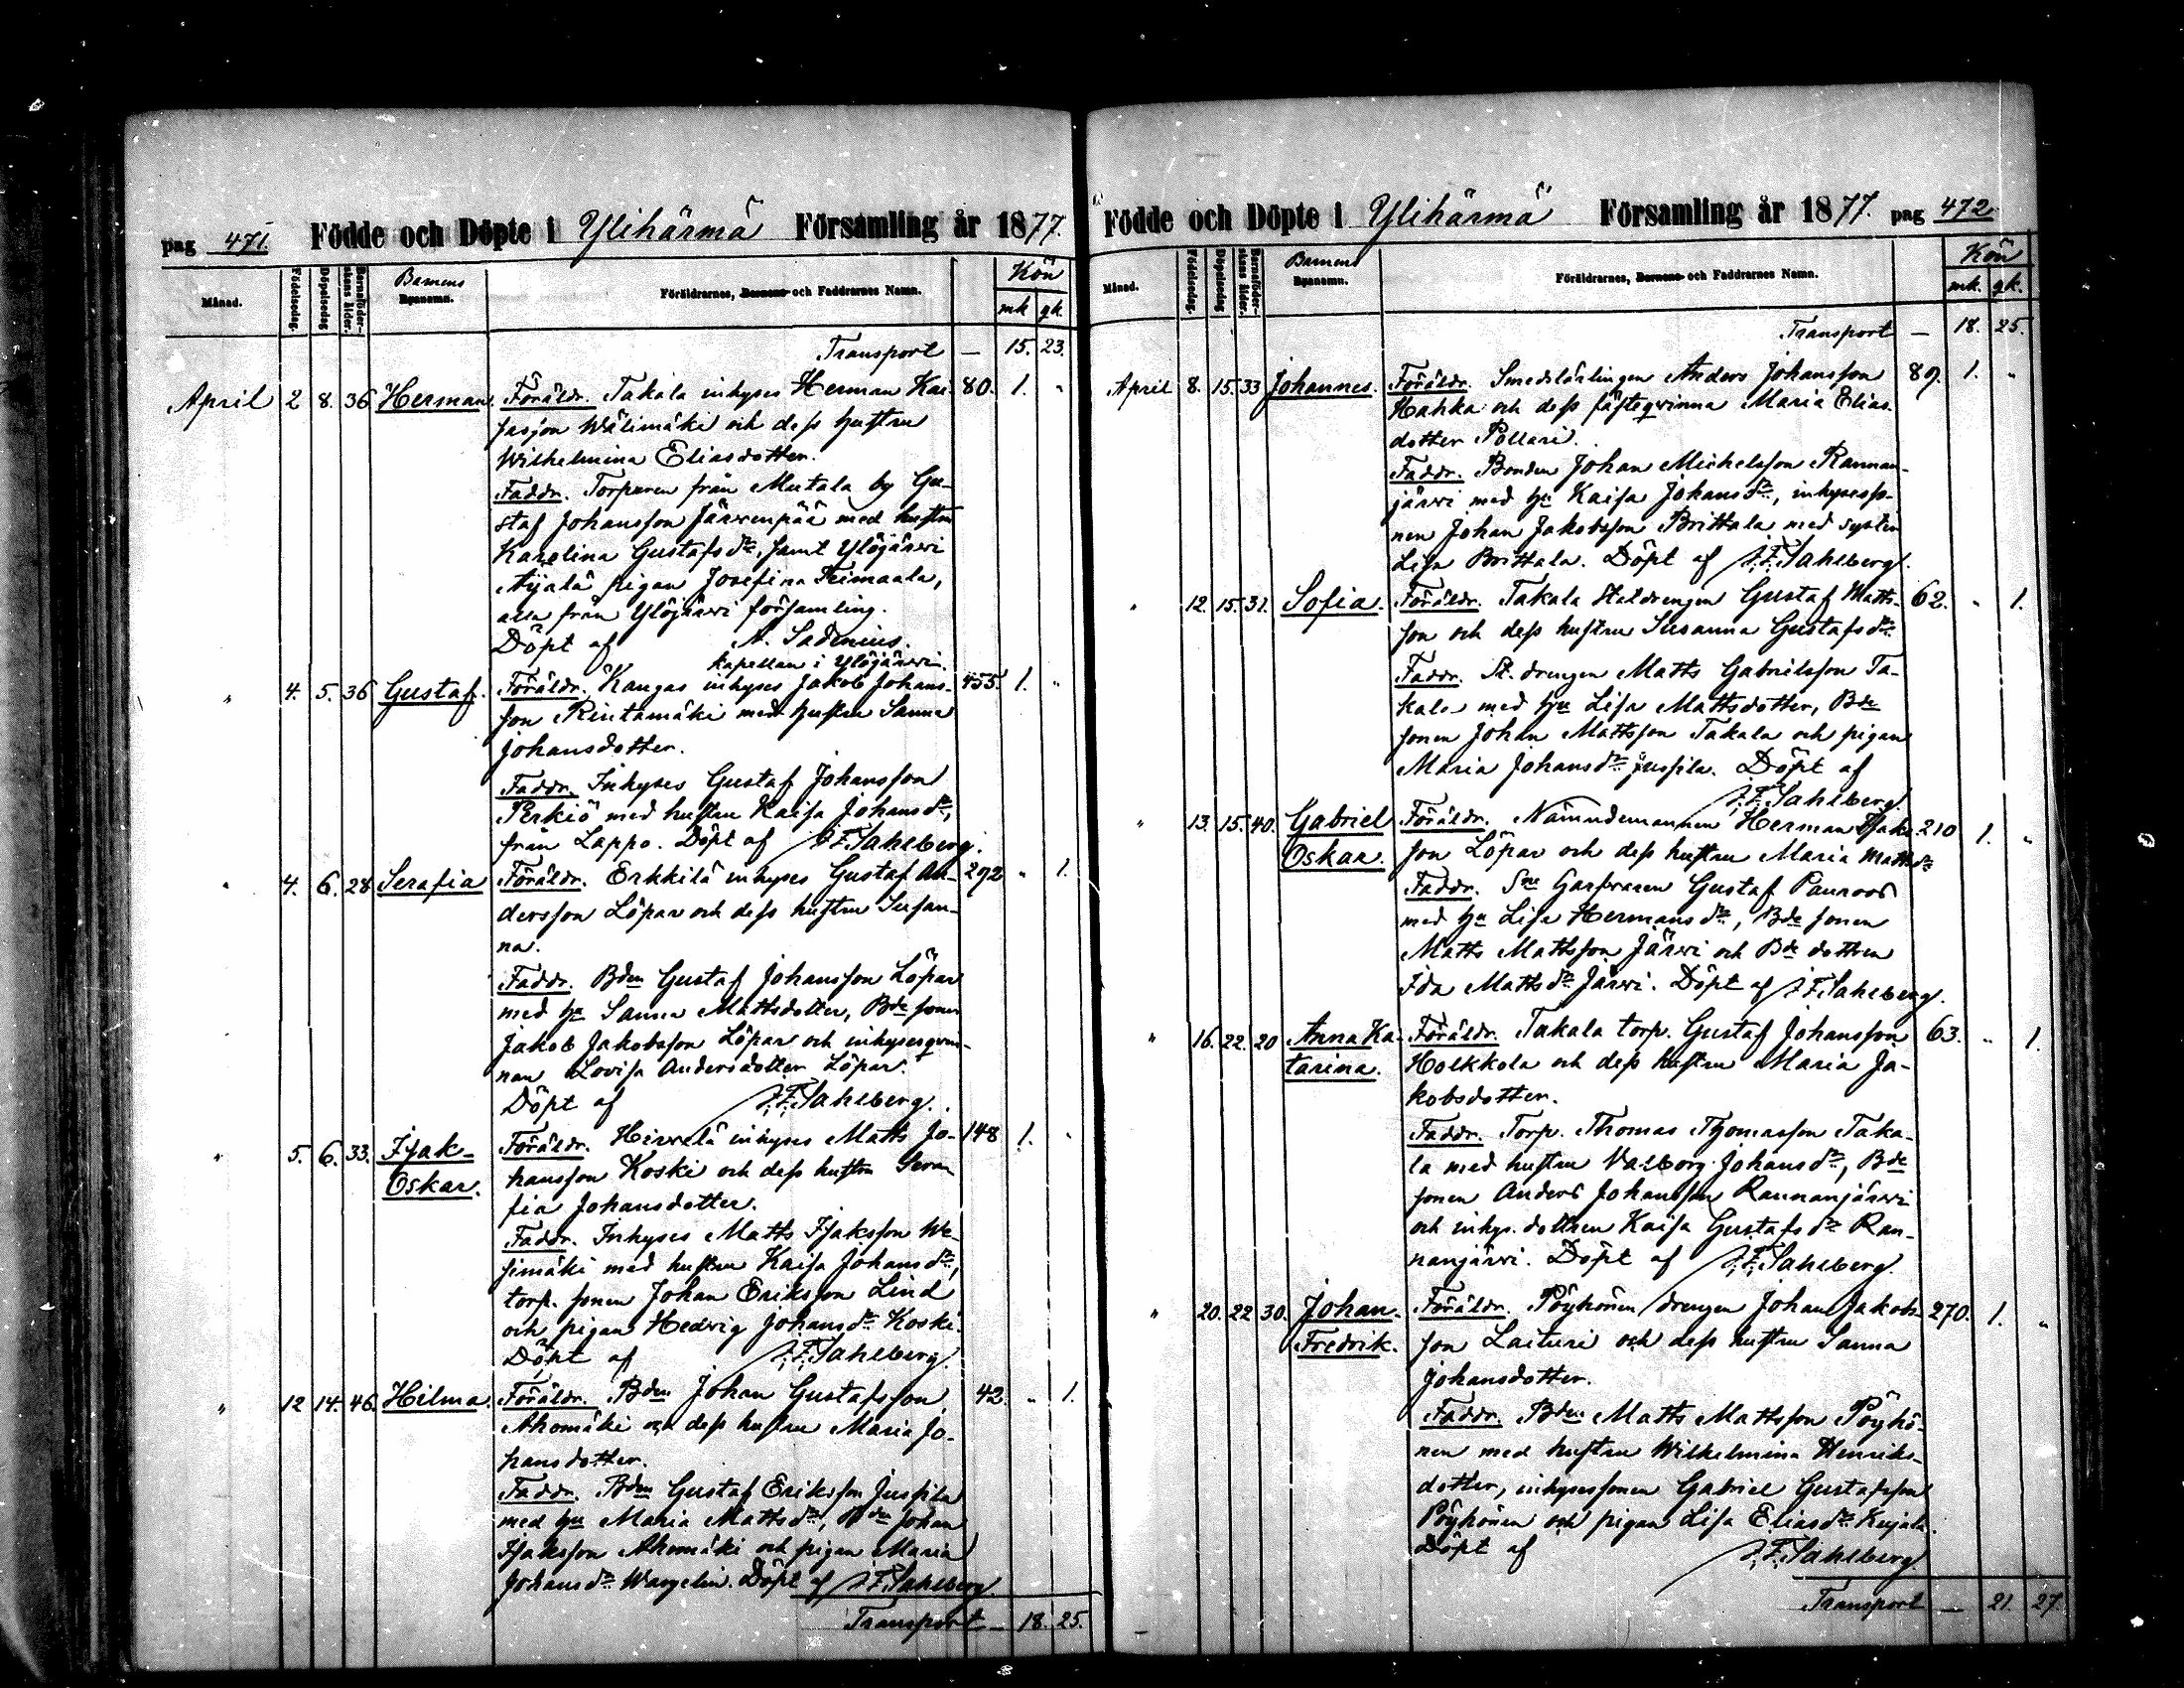 pag 471. Födde och Döpte i Ylihärmä Församling år 1877.
Månad. Födelsedag. Döpelsedag. Barnaföderskans ålder. Barnens Egnamn. Föräldrarnes, Barnens och Faddrarnes Namn. Kön
mk gk.
Transport — 15. 23.
April 2 8. 36 Herman. Föräldr. Takala inhyses Herman Kai- 80. 1. "
sasson Wälimäki och dess hustru
Wilhelmina Eliasdotter.
Faddr. Torparen från Mutala by Gu-
staf Johansson Järwenpää med hustru
Karolina Gustafsdr, samt Ylöjärwi
Äijälä pigan Josefina Teimaala,
alla från Ylöjärwi församling.
Döpt af N. Sadenius.
kapellan i Ylöjärwi.
" 4. 5. 36 Gustaf. Föräldr. Kangas inhyses Jakob Johans- 455. 1. "
son Rintamäki med hustru Sanna
Johansdotter.
Faddr. Inhyses Gustaf Johansson
Perkiö med hustru Kaisa Johansdr,
från Lappo. Döpt af J. F. Sahlberg.
" 4. 6. 28 Serafia Föräldr. Erkkilä inhyses Gustaf An- 292 " 1.
dersson Löpar och dess hustru Susan-
na.
Faddr. Bden Gustaf Johansson Löpar
med hu Sanna Mattsdotter, Bde sonen
Jakob Jakobsson Löpar och inhysesqvin-
nan Lovisa Andersdotter Löpar.
Döpt af J. F. Sahlberg.
" 5. 6. 33. Isak- Föräldr. Hirvelä inhyses Matts Jo- 148 1. "
Oskar. hansson Koski och dess hustru Sera-
fia Johansdotter.
Faddr. Inhyses Matts Isaksson We-
simäki med hustru Kaisa Johansdr,
torp. sonen Johan Eriksson Lind
och pigan Hedvig Johansdr Koski.
Döpt af J. F. Sahlberg.
" 12 14. 46. Hilma. Föräldr. Bden Johan Gustafsson 42. " 1.
Ahomäki och dess hustru Maria Jo-
hansdotter.
Faddr. Bden Gustaf Eriksson Jussila
med hu Maria Mattsdr, Bden Johan
Isaksson Ahomäki och pigan Maria
Johansdr Wargelin. Döpt af J. F. Sahlberg
Transport — 18. 25.
Födde och Döpte i Ylihärmä Församling år 1877. pag 472
Månad. Födelsedag. Döpelsedag. Barnaföderskans ålder. Barnens Egnamn. Föräldrarnes, Barnens och Faddrarnes Namn. Kön
mk. gk.
Transport — 18. 25.
April 8. 15. 33 Johannes. Föräldr. Smedslärlingen Anders Johansson 89. 1. "
Hahka och dess fästeqvinna Maria Elias-
dotter Pollari.
Faddr. Bonden Johan Michelsson Rannan-
järwi med hu Kaisa Johansdr, inhysesso-
nen Johan Jakobsson Brittala med systern
Lisa Brittala. Döpt af J. F. Sahlberg.
" 12. 15. 31. Sofia. Föräldr. Takala Staldrengen Gustaf Matts- 62. " 1.
son och dess hustru Susanna Gustafsdr.
Faddr. St. drengen Matts Gabrielsson Ta-
kala med hu Lisa Mattsdotter, Bde
sonen Johan Mattsson Takala och pigan
Maria Johansdr Jussila. Döpt af
J. F. Sahlberg.
" 13. 15. 40. Gabriel Föräldr. Nämndemannen Herman Isaks- 210 1. "
Oskar. son Löpar och dess hustru Maria Mattsdr
Faddr. Garfvaren Gustaf Pauroos
med hu Lisa Hermansdr, Bde sonen
Matts Mattsson Järwi och Bde dottren
Ida Mattsdr Järwi. Döpt af J. F. Sahlberg.
" 16. 22. 20 Anna Ka- Föräldr. Takala torp. Gustaf Johansson 63. " 1.
tarina. Holkkola och dess hustru Maria Ja-
kobsdotter.
Faddr. Torp. Thomas Thomasson Taka-
la med hustru Valborg Johansdr, Bde
sonen Anders Johansson Rannanjärwi
och inhys. dottren Kaisa Gustafsdr Ran-
nanjärwi. Döpt af J. F. Sahlberg.
" 20. 22 30. Johan- Föräldr. Pöyhönen drengen Johan Jakobs- 270. 1. "
Fredrik. son Laituri och dess hustru Sanna
Johansdotter.
Faddr. Bden Matts Mattsson Pöyhö-
nen med hustru Wilhelmina Henriks-
dotter, inhysessonen Gabriel Gustafsson
Pöyhönen och pigan Lisa Eliasdr Kujala.
Döpt af J. F. Sahlberg.
Transport — 21. 27